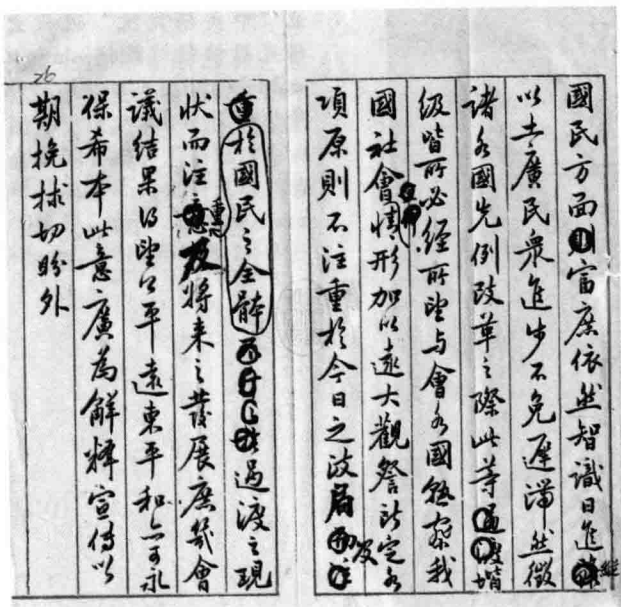 國民方面富庶依然智識日進雖
以土廣民衆進步不免遲滯然徵
諸各國先例改革之際此等階
級皆所必經所望与會各國熟察我
國社會情形加以遠大觀詧訂定各
項原則不注重於今日之政局及
於國民之全體過渡之現
狀而注重將来之發展庶幾會
議結果得望公平遠東平和亦可永
保希本此意廣為解釋宣傳以
期挽救切盼外
26